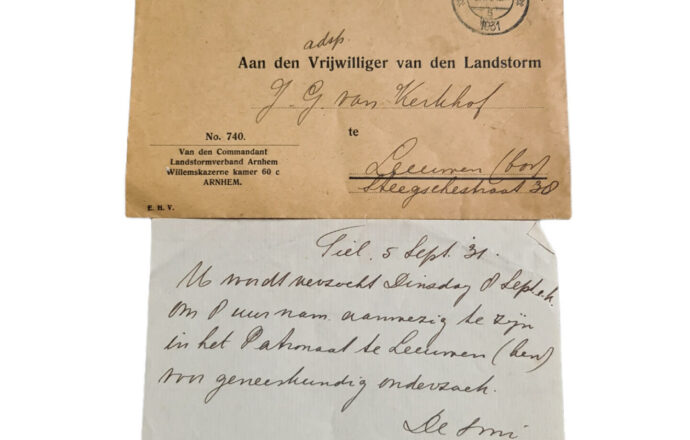 1931
adsp.
Aan den Vrijwilliger van den Landstorm
J. G. van Kerkhof
te
No. 740.
Van den Commandant
Landstormverband Arnhem
Willemskazerne kamer 60 c
ARNHEM.
Leeuwen (bov)
Steegschestraat 38
E. H. V.
Tiel, 5 Sept. '31.
U wordt verzocht Dinsdag 8 Sept. a.k.
om 8 uur nam. aanwezig te zijn
in het Patronaat te Leeuwen (ben)
voor geneeskundig onderzoek.
De